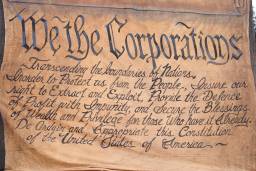 We the Corporations
Transcending the boundaries of Nations,
In order to Protect us from the People, Insure our
right to Extract and Exploit, Provide the Defence
of Profit with Impunity, and Secure the Blessings
of Wealth and Privilege for those who have it Already,
Do Ordain and Appropriate this Constitution
of the United States of America~